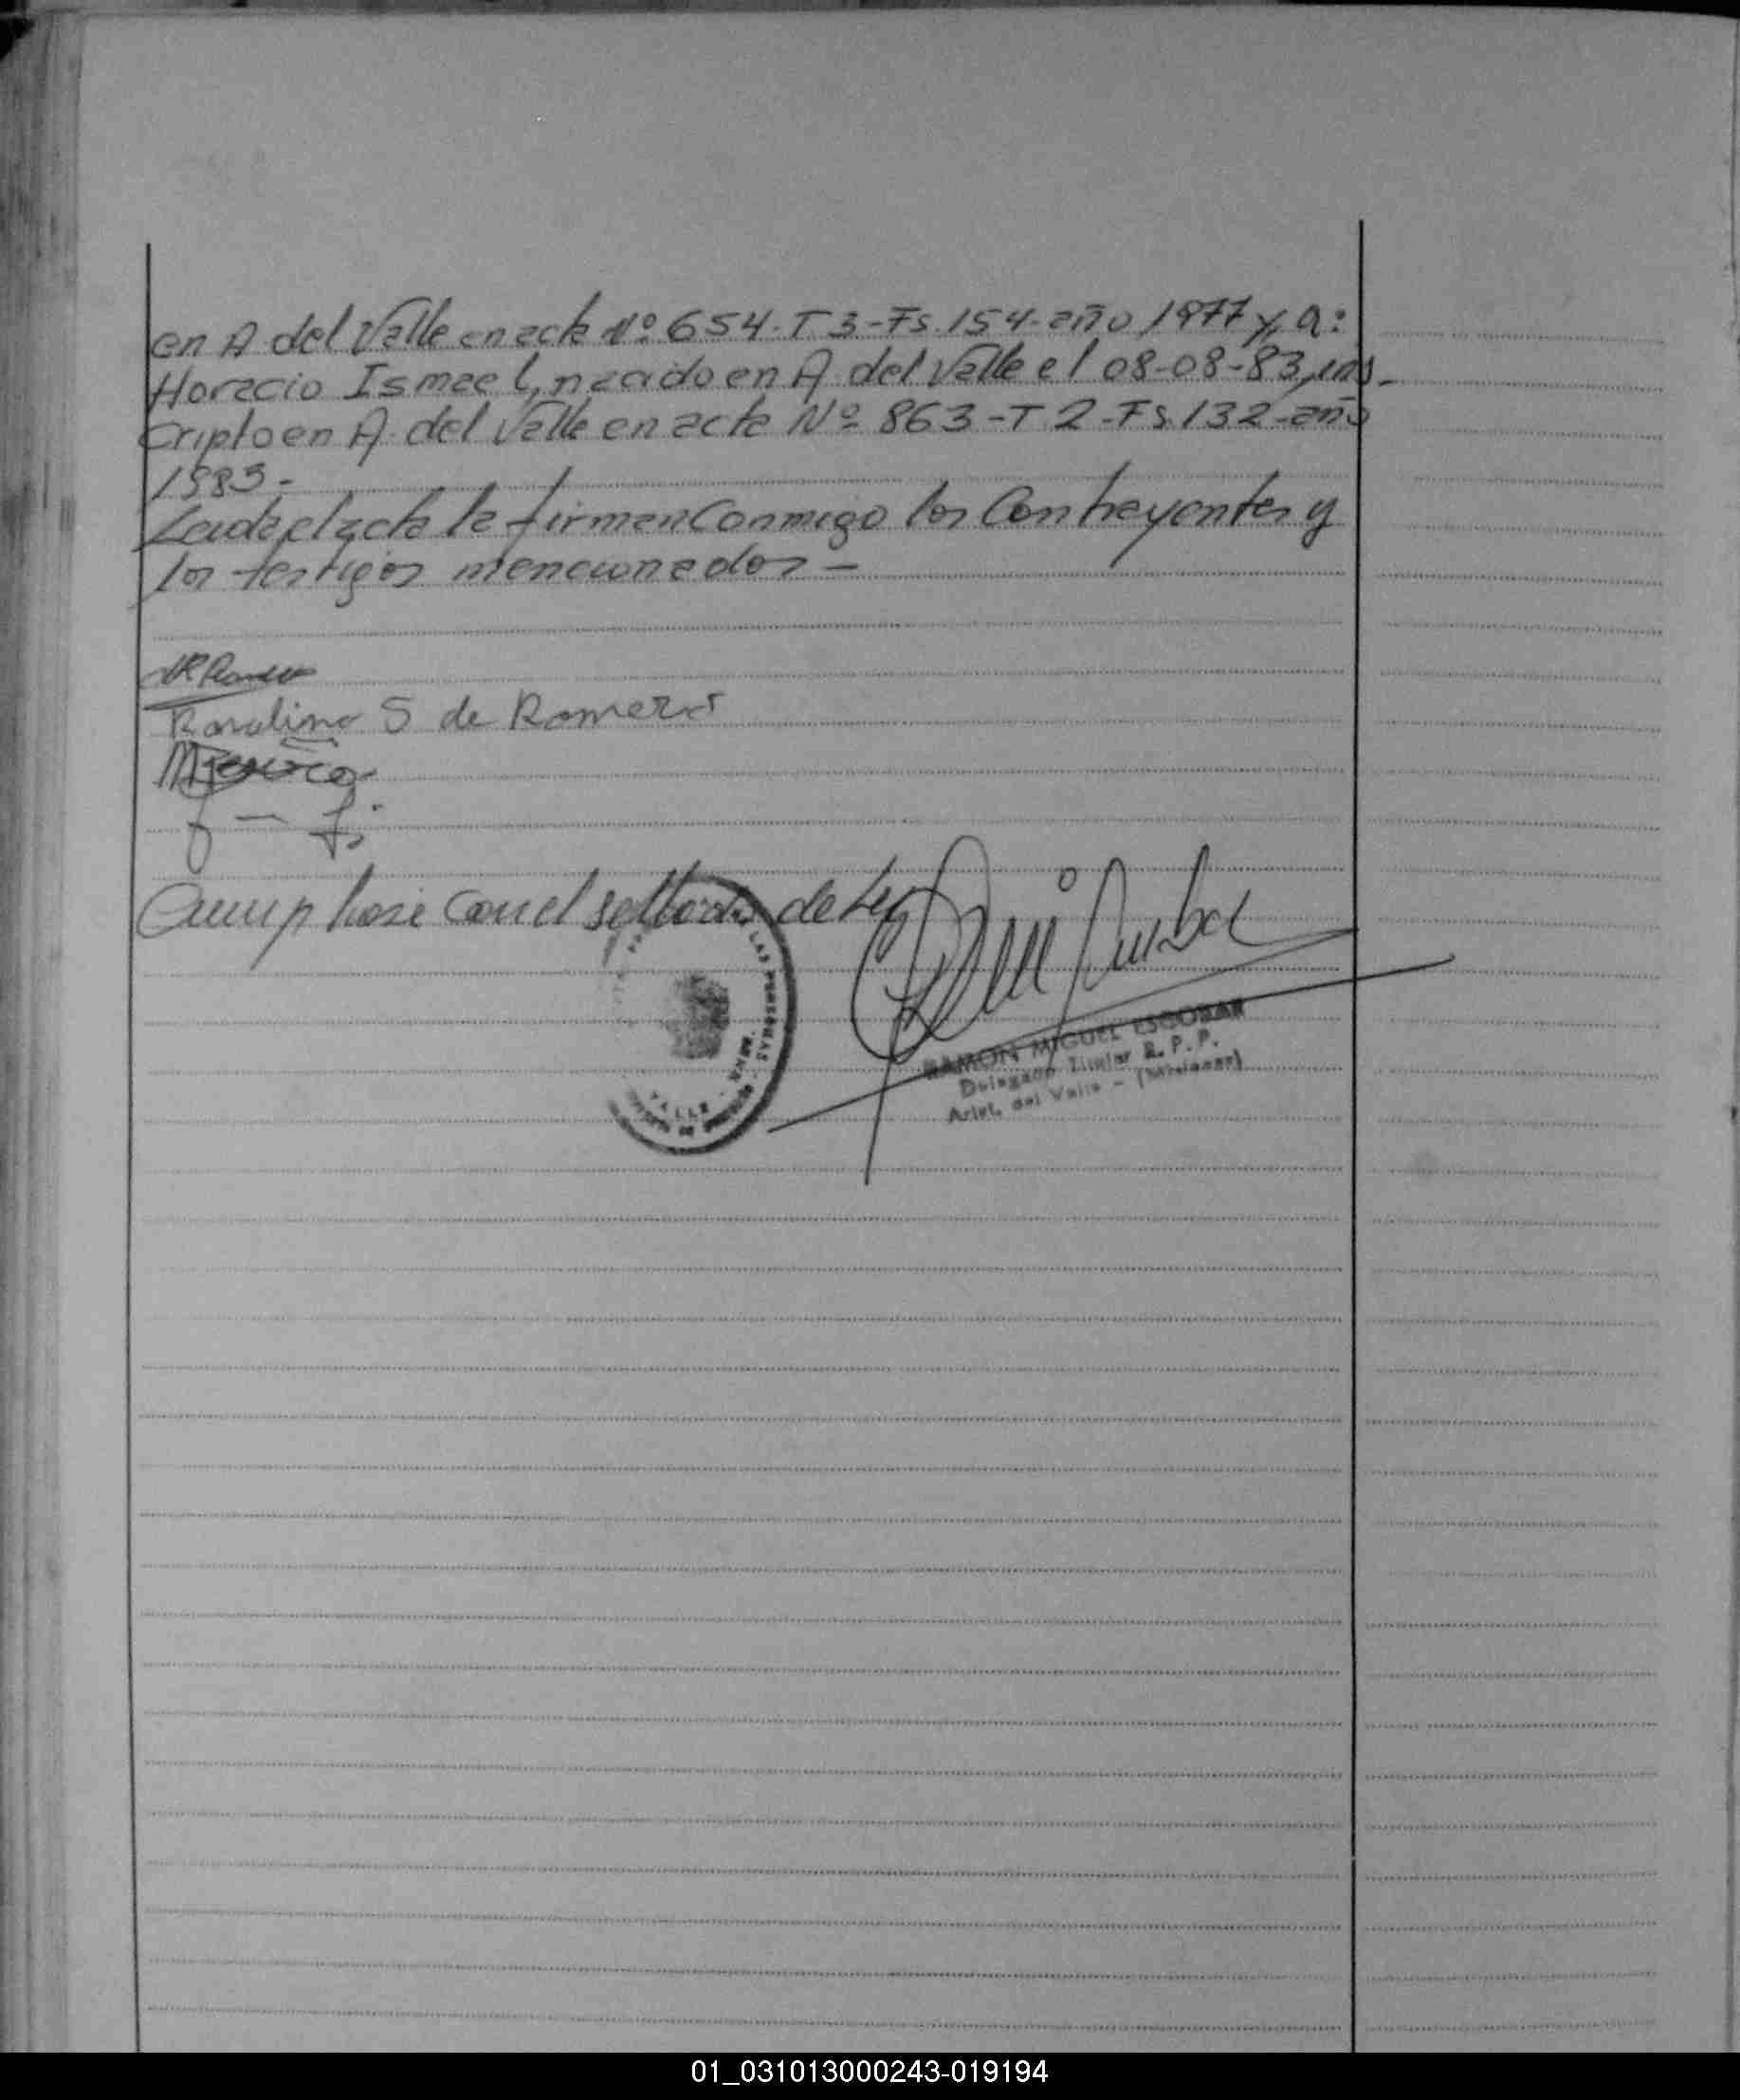 en A del Valle en acta Nº 654-T 3-Fs. 154-año 1977 y a:
Horacio Ismael, nacido en A del Valle el 08-08-83, ins-
cripto en A. del Valle en acta Nº 863-T 2-Fs. 132-año
1983-
Leida el acta la firman conmigo los contrayentes y
los testigos mencionados-
Rosalina S de Romero
Cumpliose con el sellado de Ley
LAS PERSONAS
VALLE
RAMON MIGUEL ESCOBAR
Delegado Titular R. P. P.
Arist. del Valle - (Misiones)
01_031013000243-019194